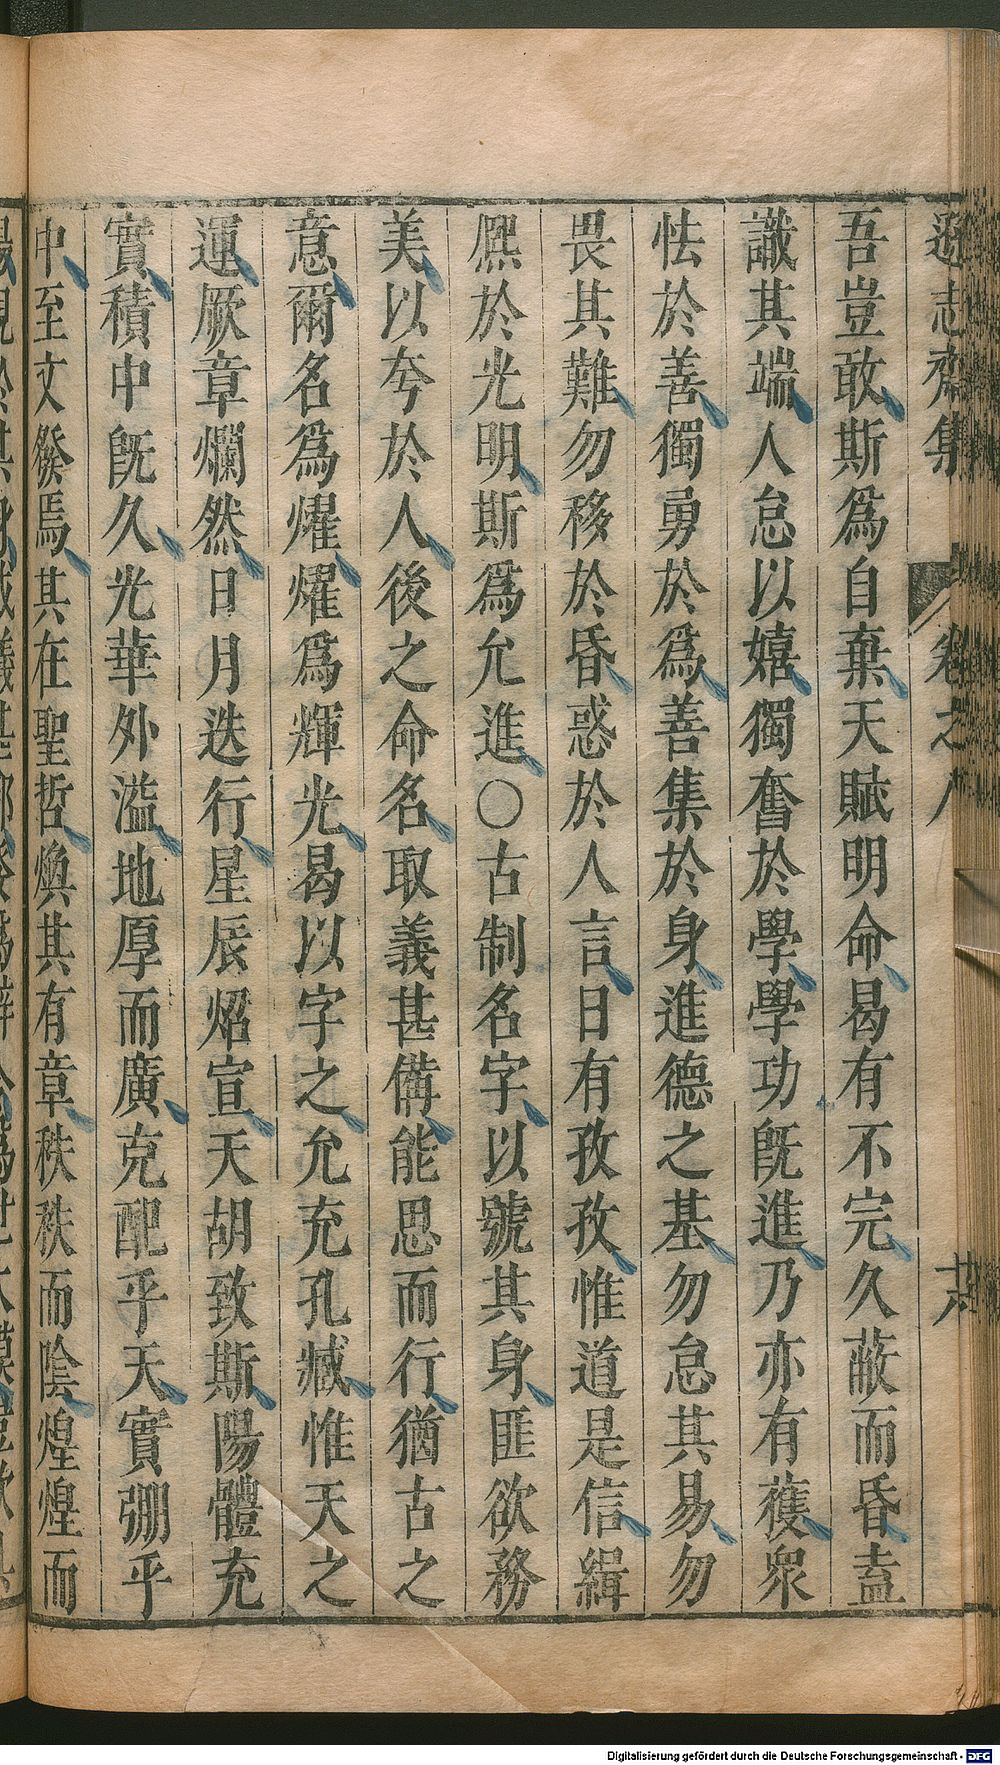 遜志齋集 卷之八
吾豈敢斯爲自棄天賦明命曷有不完久蔽而昏盍
識其端人怠以嬉獨奮於學學功旣進乃亦有獲衆
怯於善獨勇於爲善集於身進德之基勿怠其易勿
畏其難勿移於昏惑於人言日有孜孜惟道是信緝
熈於光明斯爲允進○古制名字以號其身匪欲務
美以夸於人後之命名取義甚備能思而行猶古之
意爾名爲燿燿爲輝光曷以字之允充孔臧惟天之
運厥章爛然日月迭行星辰炤宣天胡致斯陽體充
實積中旣久光華外溢地厚而廣克配乎天實弸乎
中至文發焉其在聖哲煥其有章秩秩而陰煌煌而
Digitalisierung gefördert durch die Deutsche Forschungsgemeinschaft - DFG